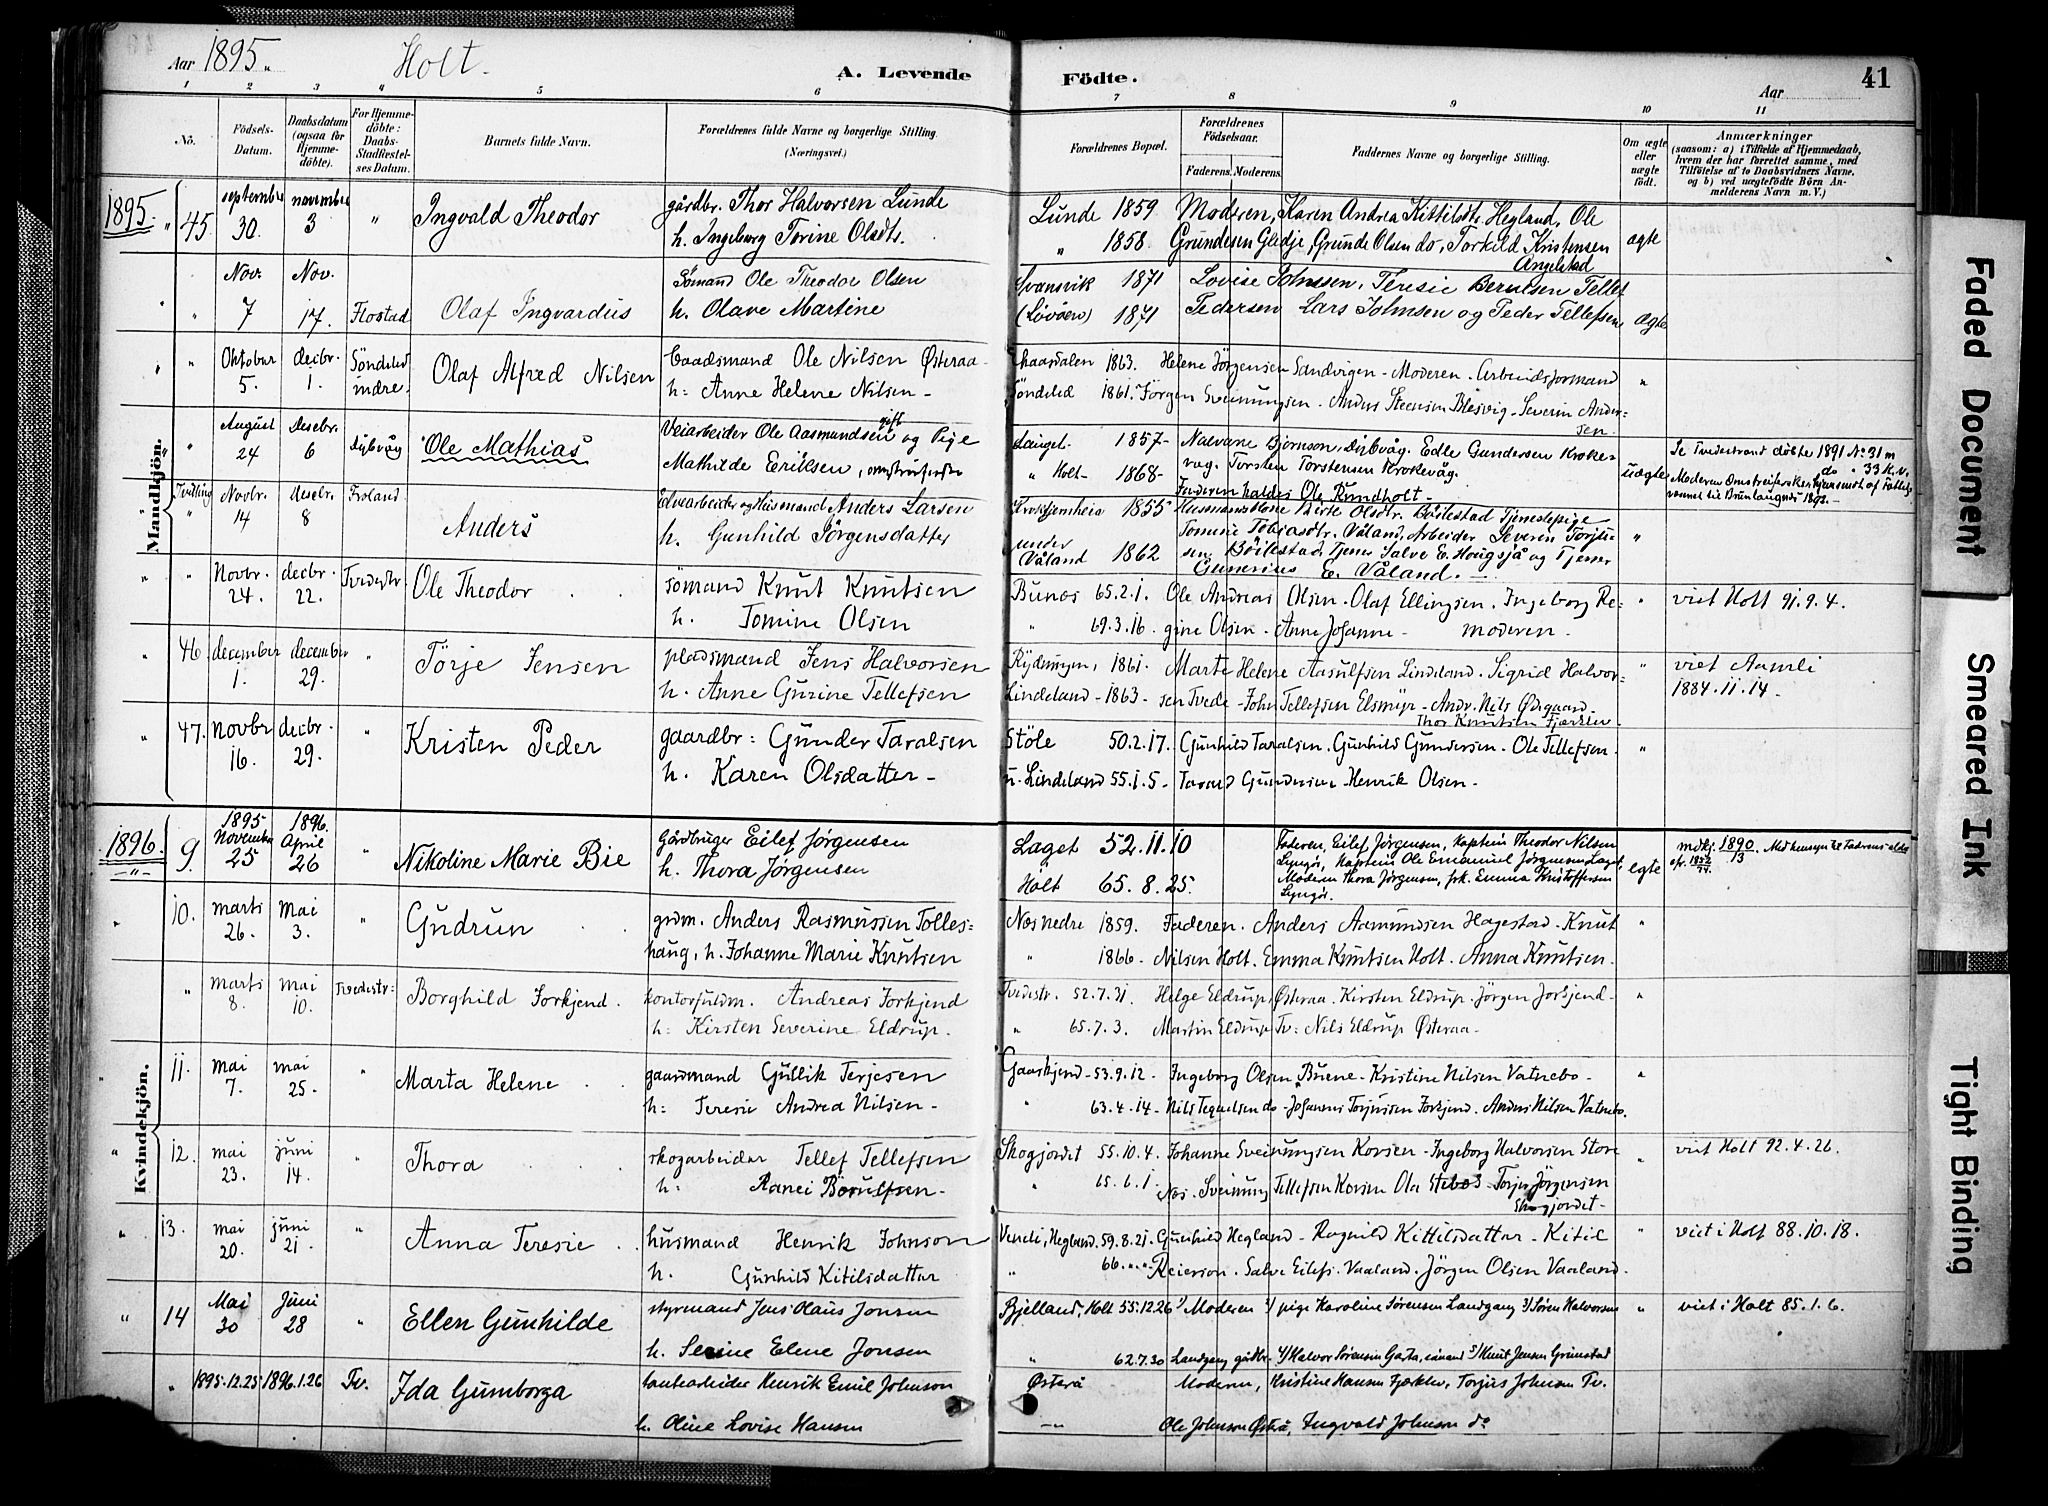 Aar 1895. Holt. A. Levende Födte. Aar 41
1 2 3 4 5 6 7 8 9 10 11
No. Födsels-Datum. Daabsdatum (ogsaa for Hjemmedöbte). For Hjemmedöbte: Daabs-Stadfæstelses Datum. Barnets fulde Navn. Forældrenes fulde Navne og borgerlige Stilling. (Næringsvei.) Forældrenes Bopæl. Forældrenes Födselsaar. Faderens. Moderens. Faddernes Navne og borgerlige Stilling. Om ægte eller uægte födt. Anmærkninger (saasom: a) i Tilfælde af Hjemmedaab, hvem der har forrettet samme, med Tilföielse af to Daabsvidners Navne, og b) ved uægtefödte Börn Anmelderens Navn m. V.)
Mandkjön.
1895. 45. september 30. november 3 " Ingvald Theodor gårdbr. Thor Halvorsen Lunde Lunde 1859 Moderen, Karen Andrea Kittilsdtr. Hegland, Ole
h. Ingeborg Torine Olsdtr. " 1858. Grundesen Gledje, Grunde Olsen do, Torkild Kristensen Angelstad ægte
" Nov. 7 Nov. 17. Flostad Olaf Ingvardus Sømand Ole Theodor Olsen Svansvik 1871 Lovise Johnssen, Teresie Berntsen Tellef
h. Olave Martine 1871 Pedersen Lars Johnsen og Peder Tellefsen ægte
" Oktober 5. decbr. 1. Söndeled indre. Olaf Alfred Nilsen baadsmand Ole Nilsen Østeraa 1863. Helene Jörgensen Sandvigen - Moderen - Arbeidsformand "
h: Anne Helene Nilsen - Söndeled 1861. Jörgen Sveinungsen - Anders Steensen Blesvig - Severin Andersen.
" August 24 Desebr. 6 Dybvåg Ole Mathias Veiarbeider Ole Aasmundsen gift og Pige Lauget 1857- Bjornson, Dybvåg. Edle Gundersen Kroke-
Mathilde Eeriksen, omstreiferske " Holt- 1868- vag. Torsten Torstensen Krokevåg. uægte
Faderen kaldes Ole Rundholt -
Se Tvedestrand döbte 1891 No 31 m
do " 33 K.v.
Tvilling " Novbr. 14 Desebr. 8 Froland Anders og Husmand Anders Larsen 1855 Husmandskone Birte Olsdtr. Böilestad Tjenestepige
h. Gunhild Jörgensdatter under Våland 1862 Tomine Tobiasdtr. Våland, Arbeider Severin Torju-
sen Böilestad, Tjener Salve E. Hougsjå og Tjener "
Gunerius E. Våland. -
" Novbr. 24. decbr. 22. Tvedestr. Ole Theodor sömand Knut Knutsen Bunes 65.2.1. Ole Andreas Olsen - Olaf Ellingsen - Ingeborg Re= " viet Holt 91.9.4.
h. Tomine Olsen " 69.3.16. gine Olsen - Anne Johanne - moderen -
46. december 1. december 29. " Törje Jensen pladsmand Jens Halvorsen Rydningen, 1861. Marte Helene Aasulfsen Lindeland. Sigrid Halvor= " viet Aamli
h. Anne Gurine Tellefsen Lindeland - 1863- sen Tvede - John Tellefsen Elsmyr - Andr. Nils Ødegaard 1884.11.14 -
Thor Knutsen Fjærkin -
47. Novbr 16. decbr. 29. " Kristen Peder gaardbr: Gunder Taralsen Stöle 50.2.17. Gunhild Taralsen. Gunhild Gundersen - Ole Tellefsen. "
h. Karen Olsdatter - u. Lindeland 55.1.5- Tarald Gundersen - Henrik Olsen -
Kvindekjön.
1896. 9. 1895 November 25 1896. April 26 " Nikoline Marie Bie Gårdbruger Eilef Jørgensen Laget 52.11.10 Faderen, Eilef Jørgensen, Kaptein Theodor Nilsen
h. Thora Jørgensen Holt 65.8.25. Lyngör, Kaptein Ole Emanuel Jørgensen Laget,
Moderen Thora Jørgensen, frk. Emma Kristoffersen
Lyngör. egte
mdkj. 1890/13 Med hensyn til Faderens alder
cfr. 1852/74.
10. marts 26. Mai 3. " Gudrun grdm. Anders Rasmussen Tolles= Næs nedre 1859. Faderen. Anders Aamundsen Hagestad - Knut "
haug, h. Johanne Marie Knutsen " 1866- Nilsen Holt. Emma Knutsen Holt. Anna Knutsen.
" marts 8. mai 10. Tvedestr: Borghild Forkjend. kontorfuldm. Andreas Forkjend Tvedestr. 52.7.31. Helge Eldrup, Østeraa - Kirsten Eldrup - Jörgen Forkjend. "
h: Kirsten Severine Eldrup. " 65.7.3. Martin Eldrup Tv: Nils Eldrup Østeraa -
11. mai 7. mai 25. " Marta Helene gaardmand Gullik Terjesen Gaaskjend - 53.9.12. Ingeborg Olsen Buene - Kristine Nilsen Vatnebo - "
h: Teresie Andrea Nilsen - " 63.4.14 - Nils do - Johannes Torjussen Forkjend. Anders Nilsen Vatnebo.
12. mai 23. juni 14. " Thora skogarbeider Tellef Tellefsen Skogjordet 55.10.4. Johanne Sveinungsen Korsen - Ingeborg Halvorsen Store " viet Holt 92.4.26.
h: Ranei Börulfsen - " 65.6.1. Næs. Sveinung Tellefsen Korsen Ola Torjus Jörgensen
Skogjordet -
13. mai 20. juni 21. " Anna Teresie husmand Henrik Johnson Hegland. 59.8.21. Gunhild Hegland - Ragnild Kittilsdatter - Kitil " viet i Holt 88.10.18.
h. Gunhild Kitilsdatter " 66. " " Reierson. Salve Eilefs. Vaaland. Jörgen Olsen Vaaland.
14 Mai 30 Juni 28 " Ellen Gunhilde styrmand Jens Olaus Jonsen Bjelland, Holt 55.12.26 1) Moderen 2) pige Karoline Sørensen Landgang 3) Søren Halvorsen " viet i Holt 85.1.6.
h. Serine Elene Jonsen " 62.7.30 Landgang gårdbr. 4) Halvor Sørensen Garta, sømand 5) Knut Jensen Grimstad
" 1895.12.25 1896.1.26 Tv. Ida Gumborga Henrik Emil Johnson Østerå Moderen, Kristine Hansen Fjærklev, Torjus Johnsen Tv.
h. Oline Lovise Hansen -"- Ole Johnsen Østerå, Ingvald Johnson do
Faded Document
Smeared Ink
Tight Binding